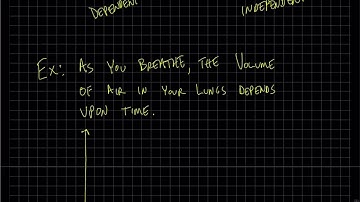 DEPENDENT INDEPENDENT
Ex: AS YOU BREATHE, THE VOLUME
OF AIR IN YOUR LUNGS DEPENDS
UPON TIME.